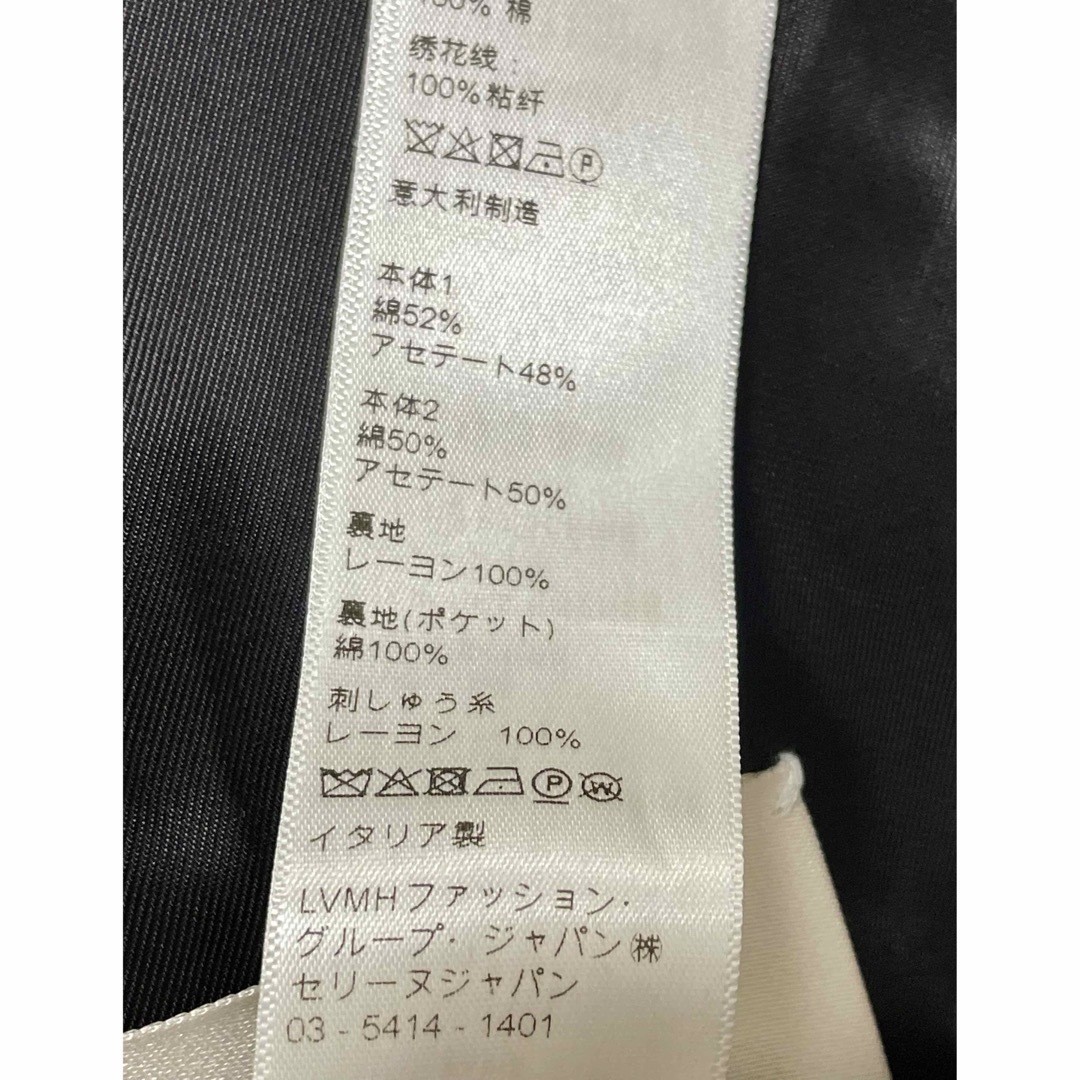 100% 棉
绣花线：
100%粘纤
P
意大利制造
本体1
綿52%
アセテート48%
本体2
綿50%
アセテート50%
裏地
レーヨン100%
裏地(ポケット)
綿100%
刺しゅう糸
レーヨン　100%
P W
イタリア製
LVMHファッション・
グループ・ジャパン㈱
セリーヌジャパン
03 - 5414 - 1401